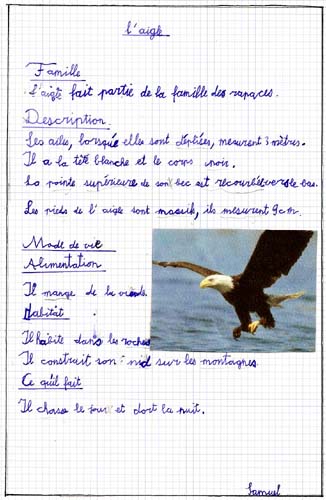 l'aigle
Famille
L'aigle fait partie de la famille des rapaces.
Description
Ses ailes, lorsqu'elles sont dépliées, mesurent 3 mètres.
Il a la tête blanche et le corps noir.
La pointe supérieure de son bec est recourbée vers le bas.
Les pieds de l'aigle sont massifs, ils mesurent 9 cm.
Mode de vie
Alimentation
Il mange de la viande.
Habitat
Il habite dans les roches
Il construit son nid sur les montagnes.
Ce qu'il fait
Il chasse le jour et dort la nuit.
Samuel